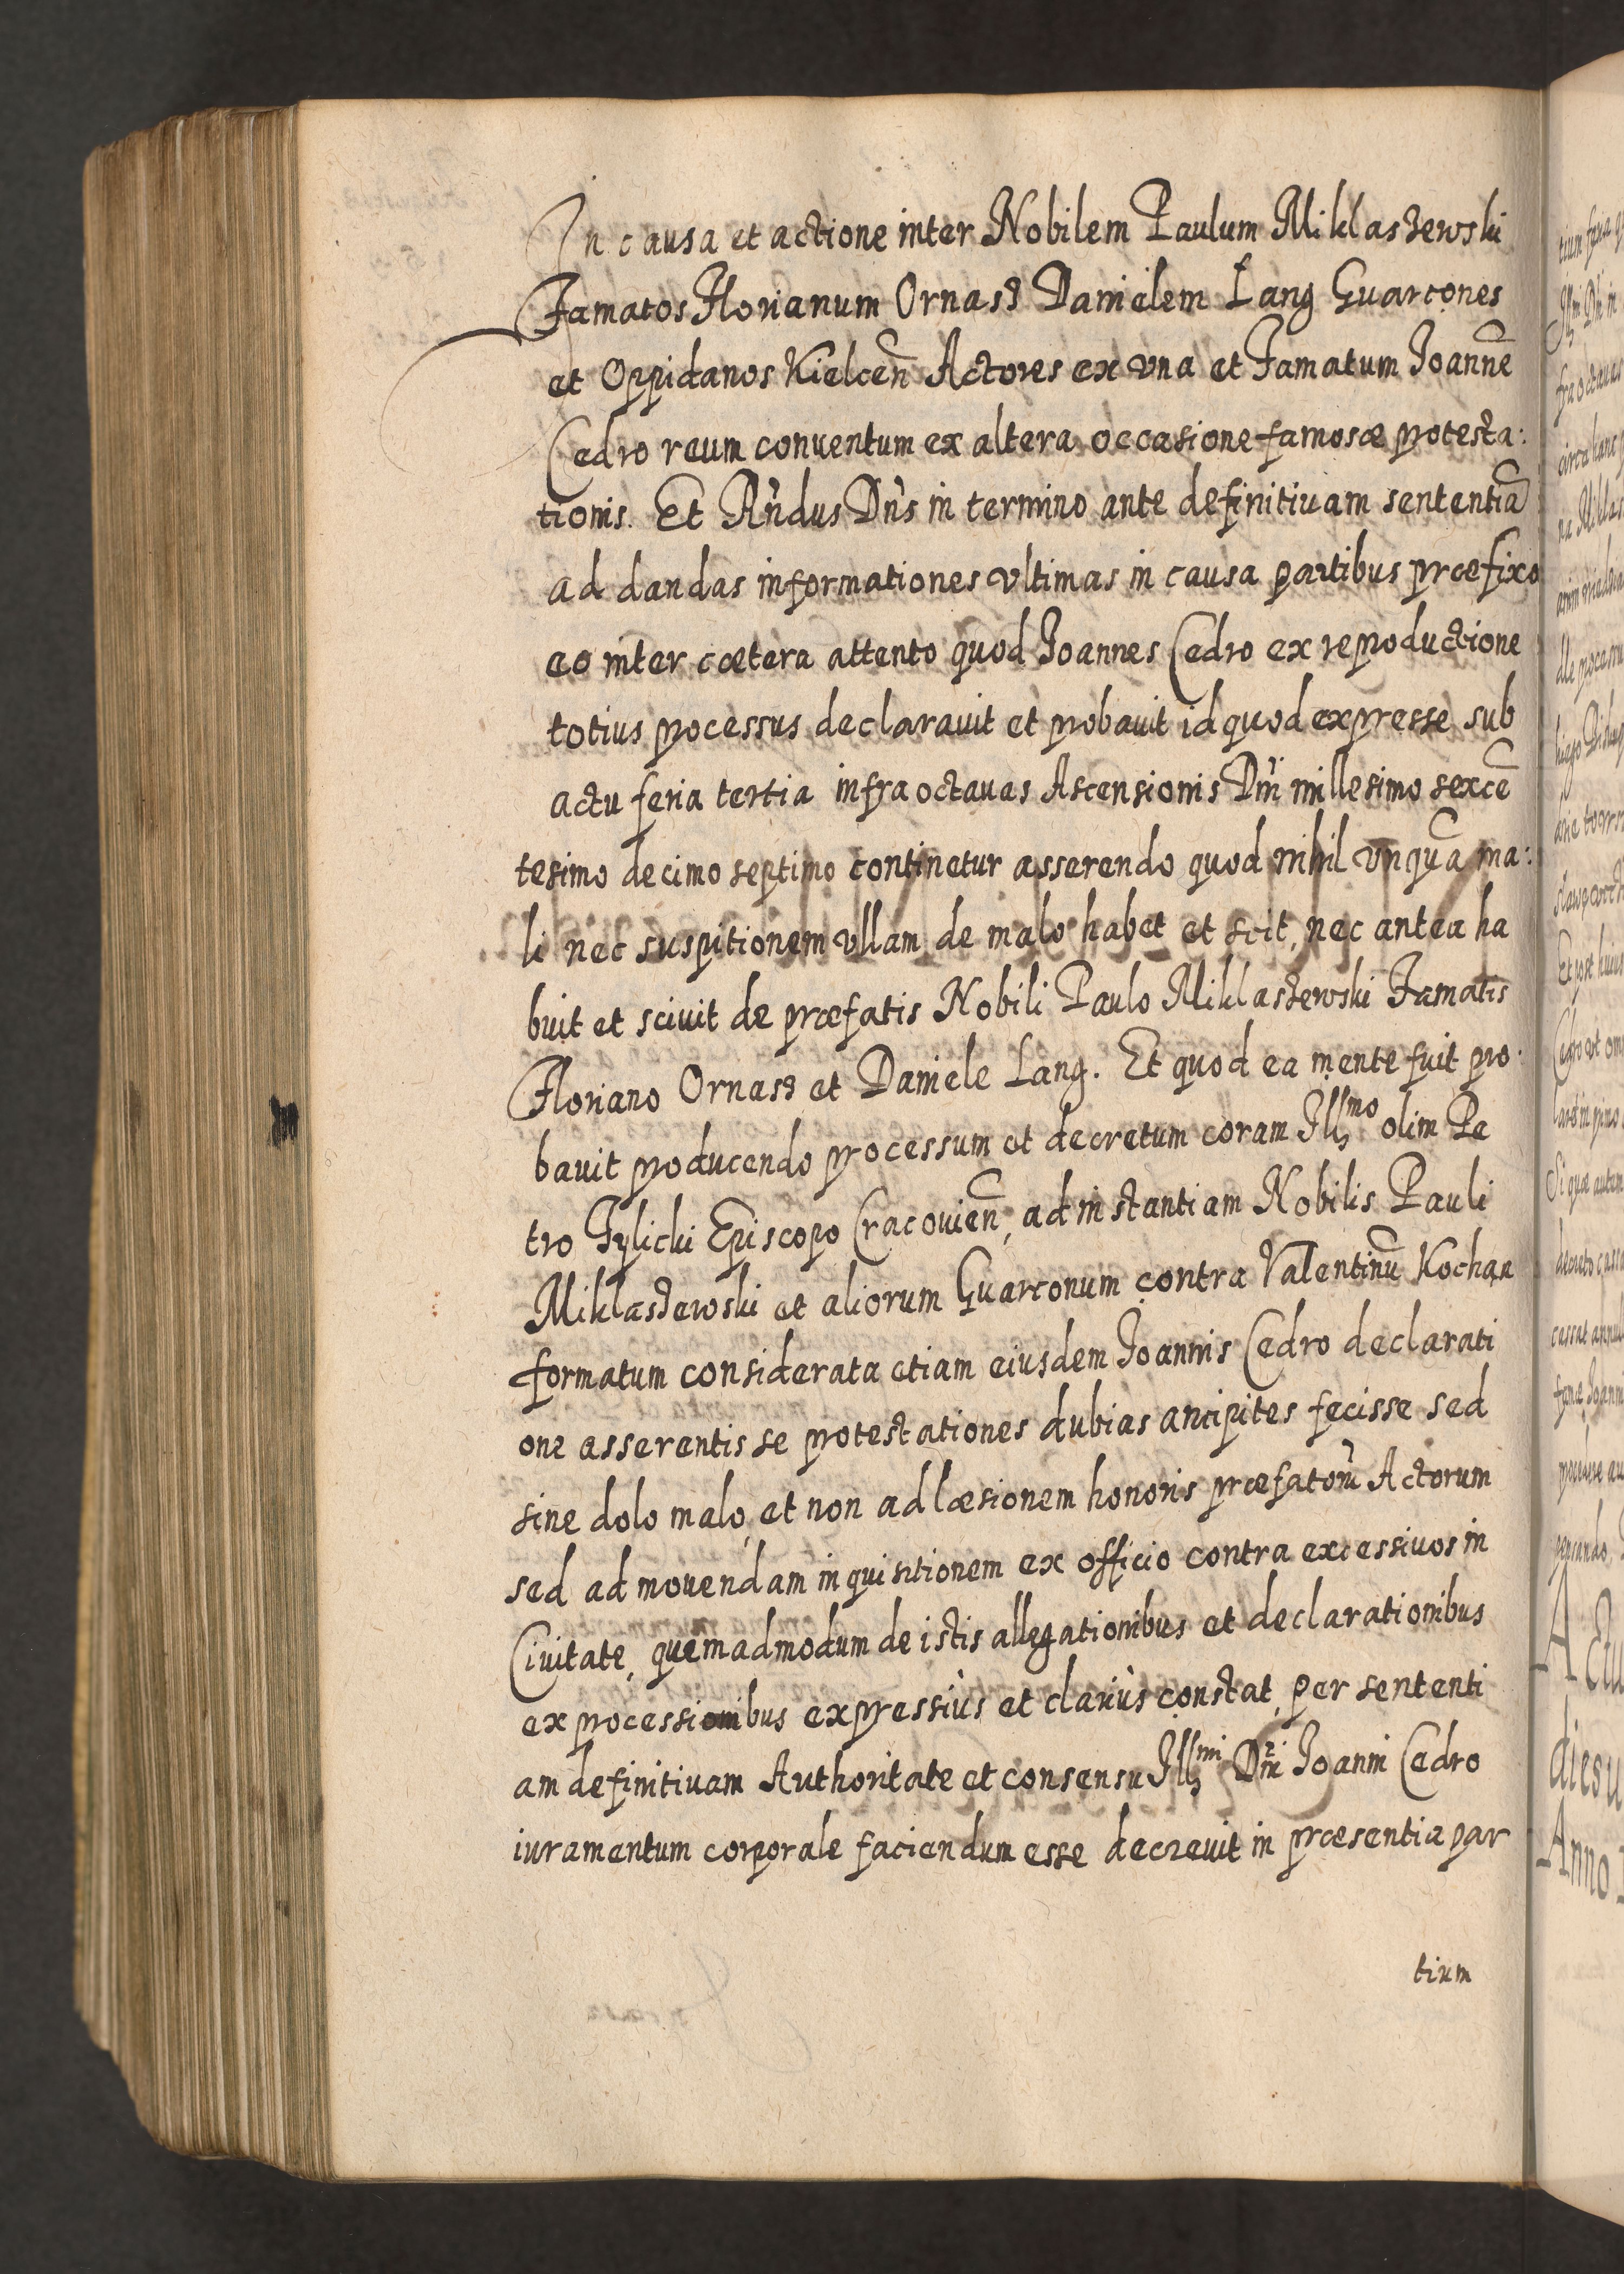 In causa et actione inter Nobilem Paulum Miklaszewski
Famatos Florianum Ornasz Danielem Lang Guarcones
et Oppidanos Kielceñ Actores ex vna et Famatum Joannē
Cedro reum conuentum ex altera occasione famosæ protesta:
tionis. Et Rn̄dus Dn̄s in termino ante definitiuam sententiā
ad dandas informationes vltimas in causa partibus præfixo
eo inter cœtera attento quod Joannes Cedro ex reproductione
totius processus declarauit et probauit id quod expresse sub
actu feria tertia infra octauas Ascensionis Dn̄i millesimo sexcē
tesimo decimo septimo continetur asserendo quod nihil vnquā ma:
li nec suspitionem vllam de malo habet et scit, nec antea ha
buit et sciuit de præfatis Nobili Paulo Miklaszewski Famatis
Floriano Ornasz et Daniele Lang. Et quod ea mente fuit pro:
bauit producendo processum et decretum coram Illmo olim Pe
tro Tylicki Episcopo Cracouień, ad instantiam Nobilis Pauli
Miklaszewski et aliorum Guarconum contra Valentinū Kochan
formatum considerata etiam eiusdem Joannis Cedro declarati
one asserentis se protestationes dubias ancipites fecisse sed
sine dolo malo, et non ad læsionem honoris præfatorū Actorum
sed ad mouendam inquisitionem ex officio contra excessiuos in
Ciuitate, quemadmodum de istis allegationibus et declarationibus
ex processionibus expressiùs et clariùs constat, per sententi
am definitiuam Authoritate et consensu Illmi Dn̄i Joanni Cedro
iuramentum corporale faciendum esse decreuit in præsentia par
tium